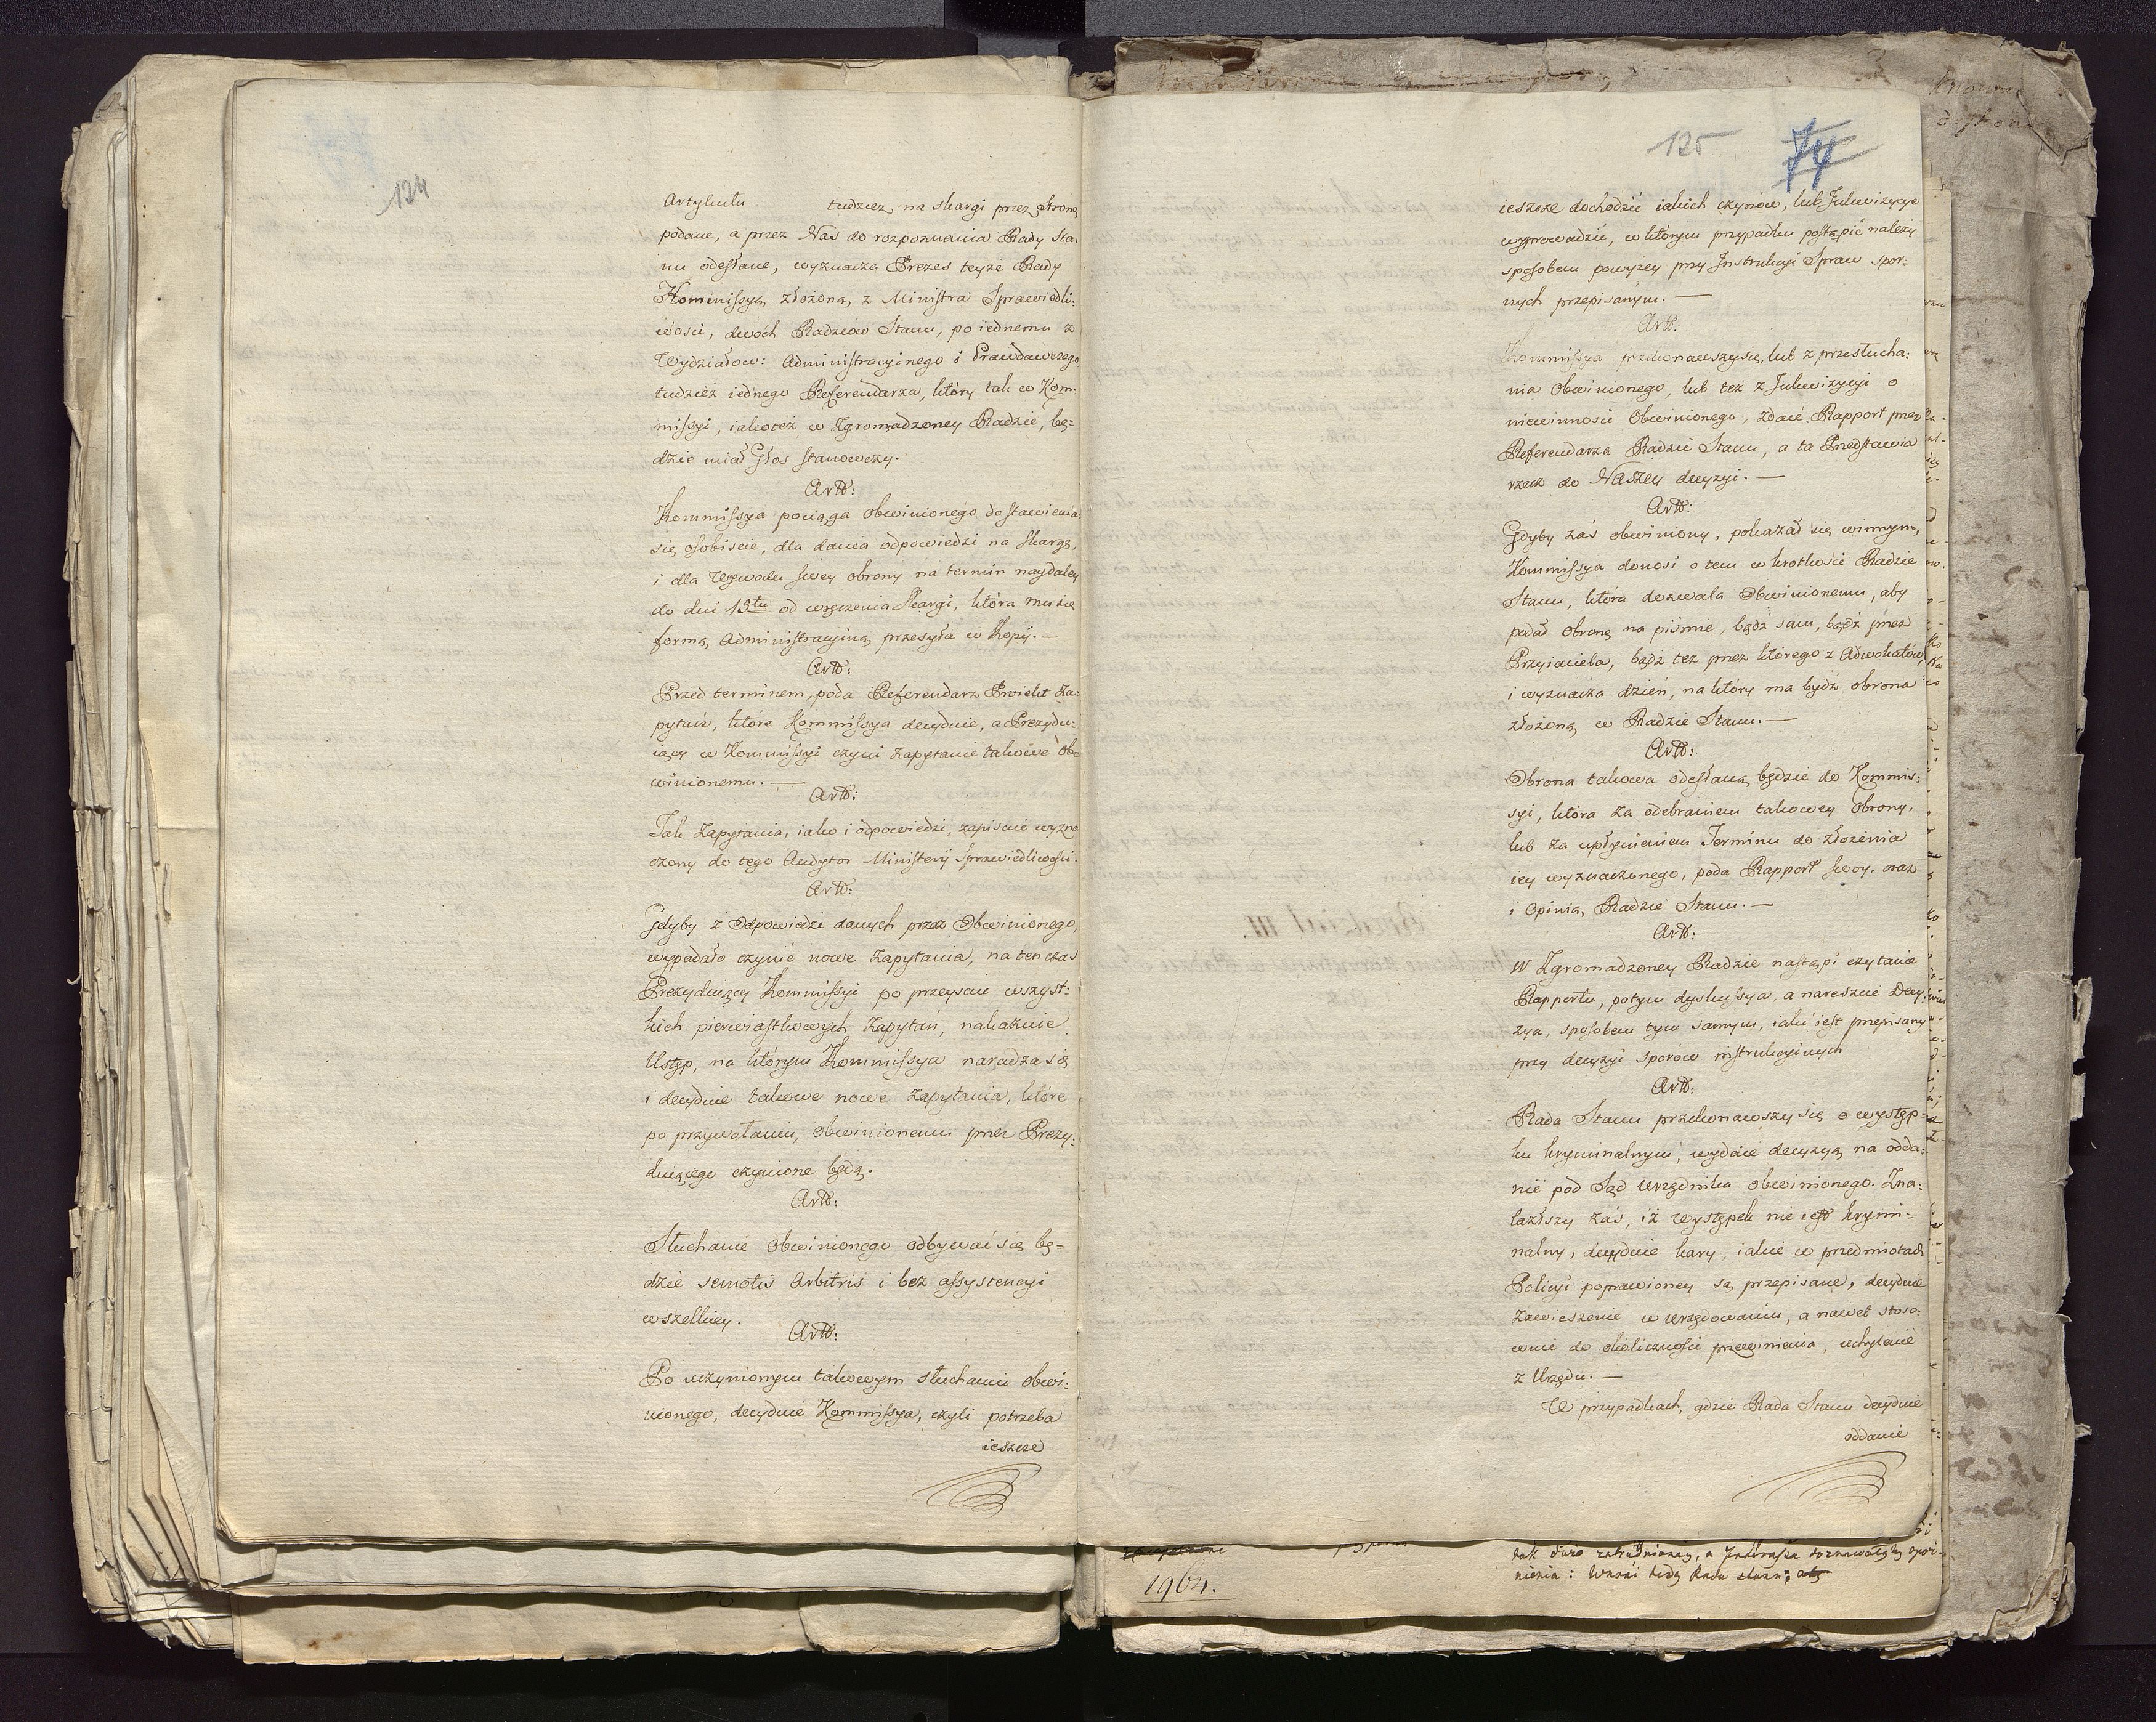 124
Artykułu tudzież na skargi przez Stronę
podane, a przez Nas do rozpoznania Rady Sta-
nu odesłane, wyznacza Prezes teyże Rady
Kommissyą złożoną z Ministra Sprawiedli:
wości, dwóch Radzców Stanu, po iednemu z
Wydziałow: Administracyinego i Prawdawczego,
tudzież iednego Referendarza, który tak w Kom:
missyi, iakoteż w Zgromadzoney Radzie, bę=
dzie miał Głos stanowczy.
Artt:
Kommissya pociąga Obwinionego do stawienia
się osobiscie, dla dania odpowiedzi na Skargę,
i dla Wywodu swey obrony na termin naydaley
do dni 15tu od wręczenia Skargi, która mu się
formą Administracyiną przesyła w Kopij. —
Artt:
Przed terminem, poda Referendarz Proiekt Za:
pytań, które Kommissya decyduie, a Prezydu:
iący w Kommissyi czyni zapytanie takowe ob=
winionemu. —
Artt:
Tak Zapytania, iako i odpowiedzi, zapisuie wyzna
czony do tego Audytor Ministerij Sprawiedliwości.
Artt:
Gdyby z Odpowiedzi danych przez Obwinionego,
wypadało czynić nowe Zapytania, na ten czas
Prezyduiący Kommissyi po przeyściu wszyst:
kich pierwiastkowych Zapytań, nakazuie
Ustęp, na którym Kommissya naradza się
i decyduie takowe nowe Zapytania, które
po przywołaniu, Obwinionemu przez Prezy:
duiącego czynione będą.
Artt:
Słuchanie Obwinionego odbywać się bę=
dzie semotis Arbitris i bez assystencyi
wszelkiey.
Artt:
Po uczynionym takowym słuchaniu obwi:
nionego, decyduie Kommissya, czyli potrzeba
ieszcze
125 74
ieszcze dochodzić iakich czynów, lub Inkwizycye
wyprowadzić, w którym przypadku postąpić należy
sposobem powyżey przy Instrukcyi Spraw spor:
nych przepisanym. —
Artt:
Kommissya przekonawszy się, lub z przesłucha:
nia Obwinionego, lub też z Inkwizycyi o
niewinności Obwinionego, zdaie Rapport przez
Referendarza Radzie Stanu, a ta Przedstawia
rzecz do Naszey decyzyi. —
Artt:
Gdyby zaś obwiniony, pokazał się winnym,
Kommissya donosi o tem w krotkości Radzie
Stanu, która dozwala Obwinionemu, aby
podał obronę na piśmie, bądź sam, bądź przez
Przyiaciela, bądź też przez którego z Adwokatów,
i wyznacza dzień, na który ma bydź obrona
złożoną w Radzie Stanu. —
Artt:
Obrona takowa odesłana będzie do Kommis:
syi, która za odebraniem takowey Obrony,
lub za upłynieniem Terminu do złożenia
iey wyznaczonego, poda Rapport swoy, oraz
i Opinią Radzie Stanu. —
Artt:
W Zgromadzoney Radzie nastąpi czytanie
Rapportu, potym dyskussya, a nareszcie Decy:
zya, sposobem tym samym, iaki iest przepisany
przy decyzyi sporów instrukcyinych
Artt:
Rada Stanu przekonawszy się o występ=
ku kryminalnym, wydaie decyzyą na odda:
nie pod Sąd urzędnika obwinionego. Zna:
lazłszy zaś, iż występek nie iest krymi=
nalny, decyduie kary, iakie w przedmiotach
Policyi poprawioney są przepisane, decyduie
zawieszenie w urzędowaniu, a nawet stoso:
wnie do okoliczności przewinienia, uchylenie
z Urzędu. —
W przypadkach, gdzie Rada Stanu decyduie
oddanie
1964.